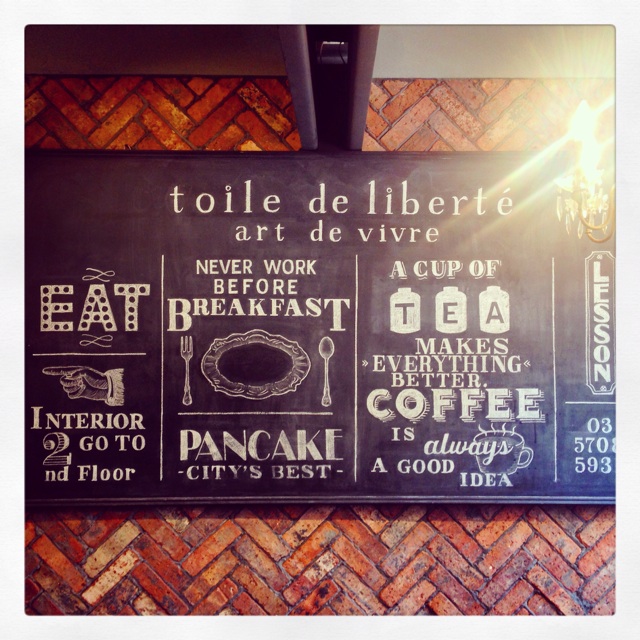 toile de liberté
art de vivre
EAT
INTERIOR
2 GO TO
nd Floor
NEVER WORK
BEFORE
BREAKFAST
PANCAKE
-CITY'S BEST-
A CUP OF
TEA
MAKES
»EVERYTHING«
BETTER.
COFFEE
IS always
A GOOD
IDEA
LESSON
03
570
593